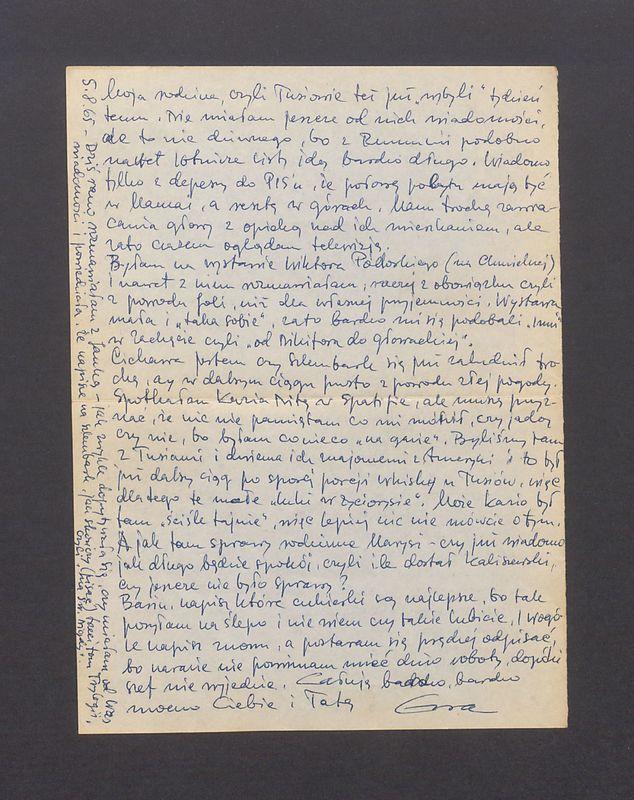 Moja rodzina, czyli Tusiowie też już „wybyli" tydzień
temu. Nie miałam jeszcze od nich wiadomości,
ale to nie dziwnego, bo z Rumunii podobno
nawet lotnicze listy idą bardzo długo. Wiadomo
tylko z depeszy do PIS'u, że połowę pobytu mają być
w Mamai, a resztę w górach. Mam trochę zawra-
cania głowy z opieką nad ich mieszkaniem, ale
zato czasem oglądam telewizję.
Byłam na wystawie Wiktora Podoskiego (na Chmielnej)
i nawet z nim rozmawiałam, raczej z obowiązku czyli
z powodu foli, niż dla własnej przyjemności. Wystawa
mała i „taka sobie", zato bardzo mi się podobali „inni"
w Zachęcie czyli „od Nikifora do Głowackiej".
Ciekawa jestem czy Szlembark się już zaludnił tro-
chę, czy w dalszym ciągu pusto z powodu złej pogody.
Spotkałam Kazia Mitę w Spatifie, ale muszę przyz-
nać, że nic nie pamiętam co mi mówił, czy jadą
czy nie, bo byłam conieco „na gazie". Byliśmy tam
z Tusiami i dwiema ich znajomemi z Ameryki i to był
już dalszy ciąg po sporej porcji whisky u Tusiów, więc
dlatego te małe „luki w życiorysie". Może Kazio był
tam „ściśle tajnie", więc lepiej nic nie mówcie o tym.
A jak tam sprawy rodzinne Marysi – czy już wiadomo
jak długo będzie spokój, czyli ile dostał Kaliszewski,
czy jeszcze nie było sprawy?
Basiu, napisz które cukierki są najlepsze, bo tak
posyłam na ślepo i nie wiem czy takie lubicie. I wogó-
le napisz znowu, a postaram się prędzej odpisać,
bo narazie nie powinnam mieć dużo roboty, dopóki
szef nie wyjedzie. Całuję bardzo, bardzo
mocno Ciebie i Tatę Ewa
5.8.65 – Dziś rano rozmawiałam z Janką – jak zwykle dopytywała się, czy miałam od Was
wiadomości i powiedziała, że napisze na Szlembark jak skończy (pisać) trzeci tom
czyli